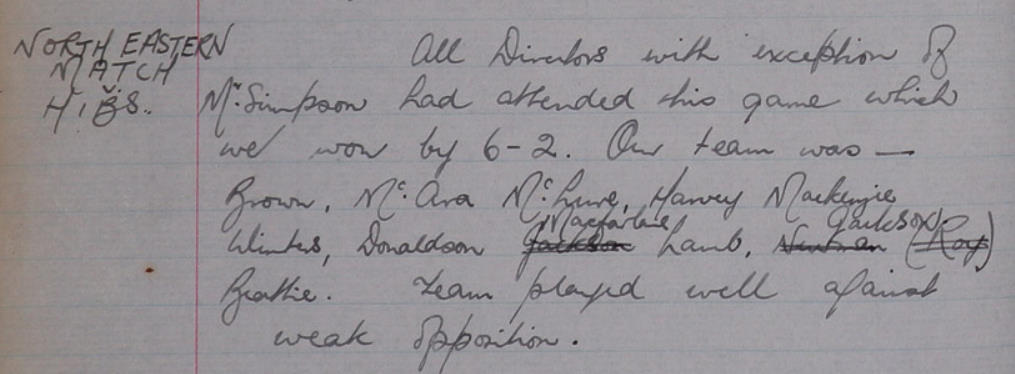 NORTH EASTERN
MATCH
V.
HIBS.
All Directors with exception of
Mr. Simpson had attended this game which
we won by 6-2. Our team was —
Brown, McAra McLure, Harvey Mackenzie
Macfarlane Jackson
Winters, Donaldson Jackson Lamb, Newman (Roy)
Beattie. Team played well against
weak opposition.